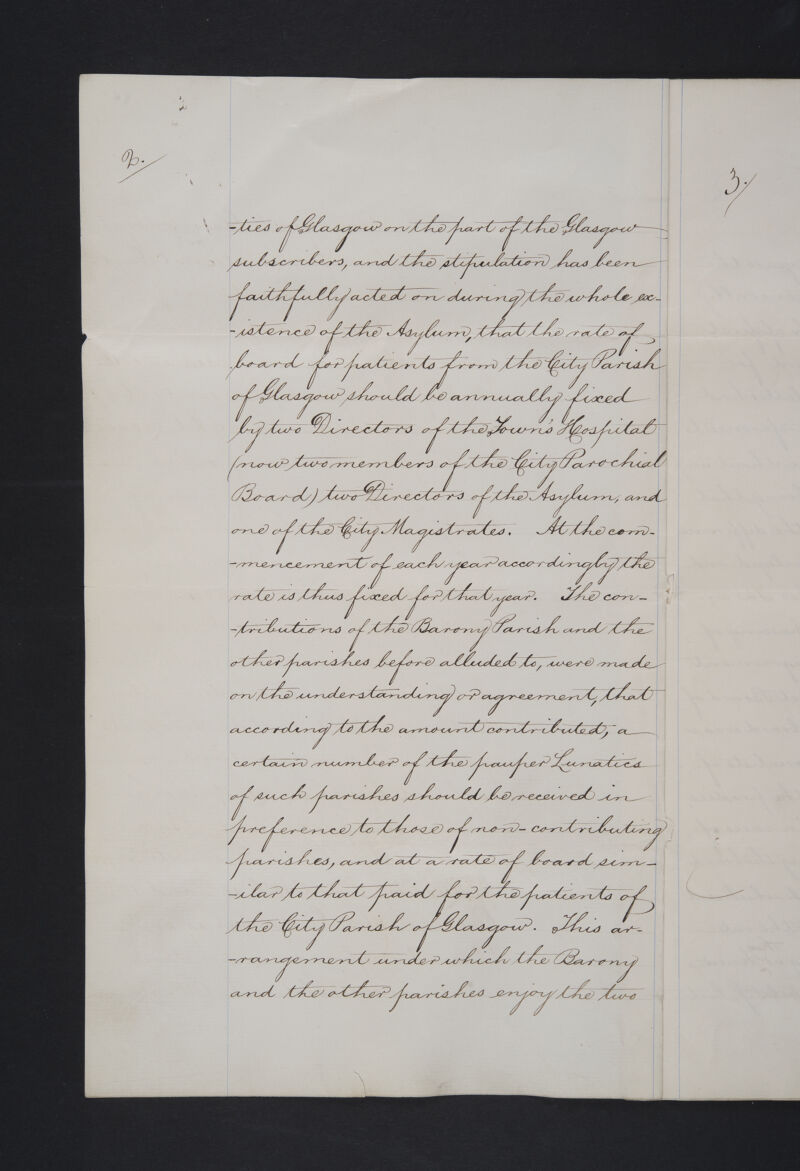 2.
3.
-ties of Glasgow on the part of the Glasgow
subscribers, and the stipulation has been
faithfully acted on during the whole ex-
-istence of the Asylum, that the rate of
board for patients from the City Parish
of Glasgow should be annually fixed
by two Directors of the Town's Hospital
(now two members of the City Parochial
Board) two Directors of the Asylum, and
one of the City Magistrates. At the com-
-mencement of each year accordingly the
rate is thus fixed for that year. The con-
-tributions of the Barony Parish and the
other parishes before alluded to, were made
on the understanding or agreement, that
according to the amount contributed, a
certain number of the pauper Lunatics
of such parishes should be received in
preference to those of non-contributing
parishes, and at a rate of board sim-
-ilar to that paid for the patients of
the City Parish of Glasgow. This ar-
-rangement under which the Barony
and the other parishes enjoy the two